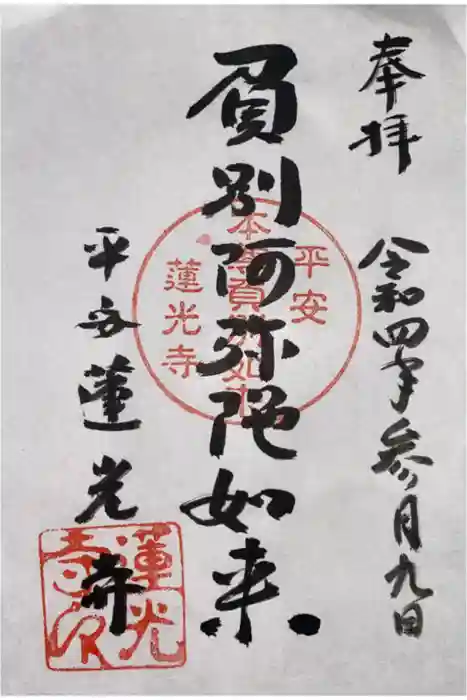 奉拝
令和四年参月九日
負別阿弥陀如来
平安蓮光寺
平安
本尊負別如来
蓮光寺
蓮光
寺印